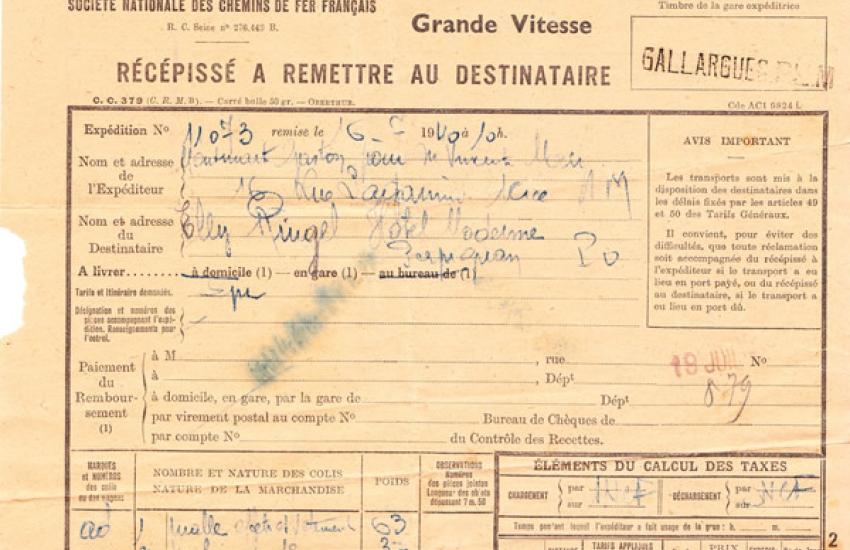 SOCIÉTÉ NATIONALE DES CHEMINS DE FER FRANÇAIS
R. C. Seine nº 276.448 B.
Grande Vitesse
Timbre de la gare expéditrice
GALLARGUES P.L.M
RÉCÉPISSÉ A REMETTRE AU DESTINATAIRE
C. C. 379 (C. R. M. B). — Carré bulle 50 gr. — OBERTHUR.
Cde AC1 9824 L
Expédition Nº 11073 remise le 16 19 40 à 10 h.
Nom et adresse de l'Expéditeur
Gaston pour
16 Rue Nice A M
Nom et adresse du Destinataire
Elly Ringel Hôtel Moderne
Perpignan P O
A livrer ........ à domicile (1) — en gare (1) — au bureau de (1)
Tarifs et itinéraire demandés.
Désignation et numéros des pièces accompagnant l'expédition. Renseignements pour l'octroi.
AVIS IMPORTANT
Les transports sont mis à la
disposition des destinataires dans
les délais fixés par les articles 49
et 50 des Tarifs Généraux.
Il convient, pour éviter des
difficultés, que toute réclamation
soit accompagnée du récépissé à
l'expéditeur si le transport a eu
lieu en port payé, ou du récépissé
au destinataire, si le transport a eu
lieu en port dû.
Paiement du Remboursement (1)
à M , rue Nº
à , Dépt
à domicile, en gare, par la gare de Dépt
par virement postal au compte Nº Bureau de Chèques de
par compte Nº du Contrôle des Recettes.
19 JUIL
879
MARQUES et NUMÉROS des colis ou des wagons
NOMBRE ET NATURE DES COLIS
NATURE DE LA MARCHANDISE
POIDS
OBSERVATIONS
Numéros des pièces jointes
Longueur des objets dépassant 7 m. 50
ÉLÉMENTS DU CALCUL DES TAXES
CHARGEMENT par sur
DÉCHARGEMENT par sur
Temps pendant lequel l'expéditeur a fait usage de la grue : h. m.
1 malle 63
TARIFS APPLIQUÉS
PRIX
2